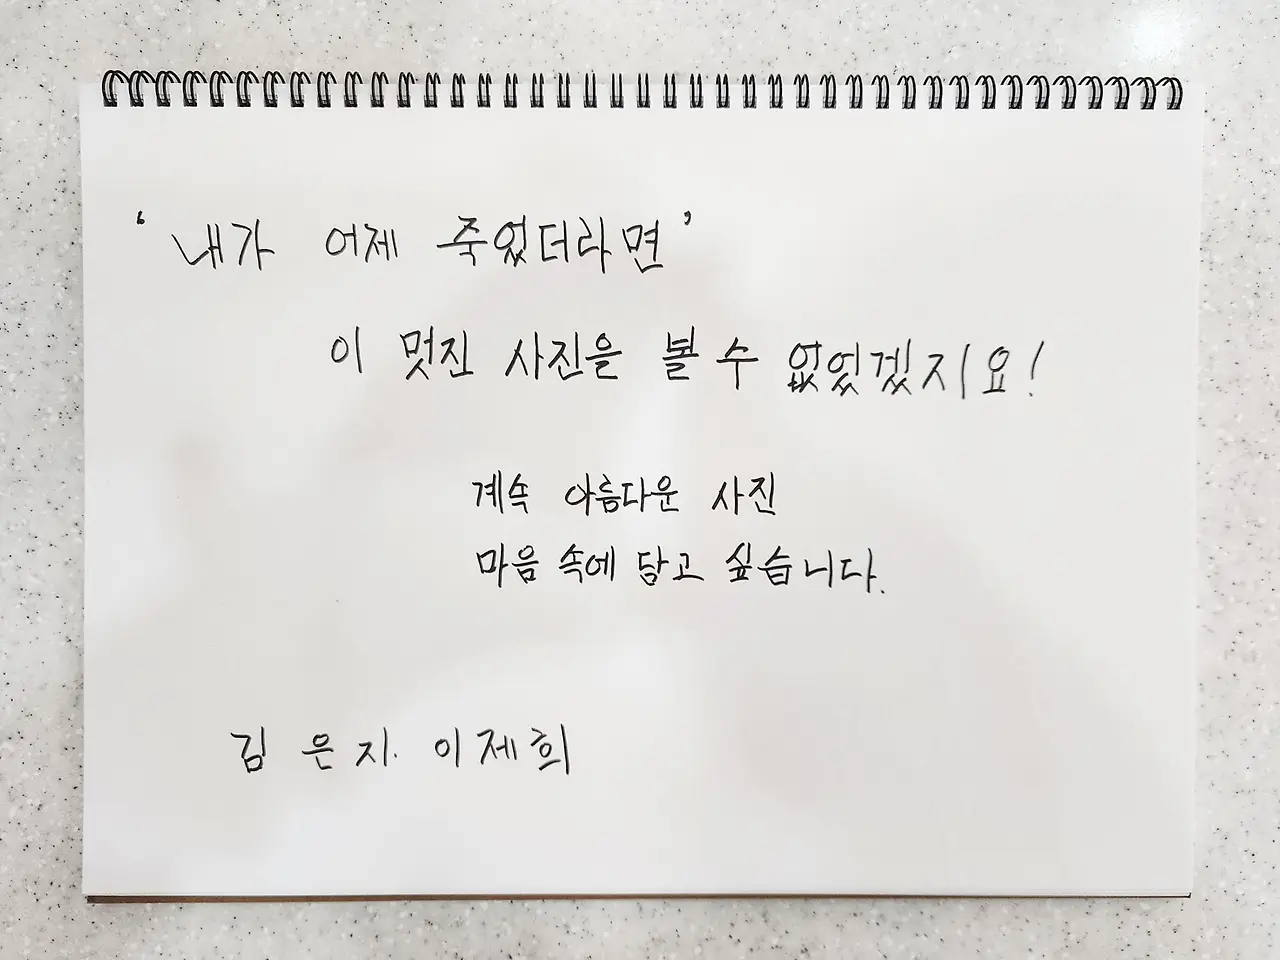 '내가 어제 죽었더라면'
이 멋진 사진을 볼 수 없었겠지요!
계속 아름다운 사진
마음 속에 담고 싶습니다.
김 은 지. 이 제 희